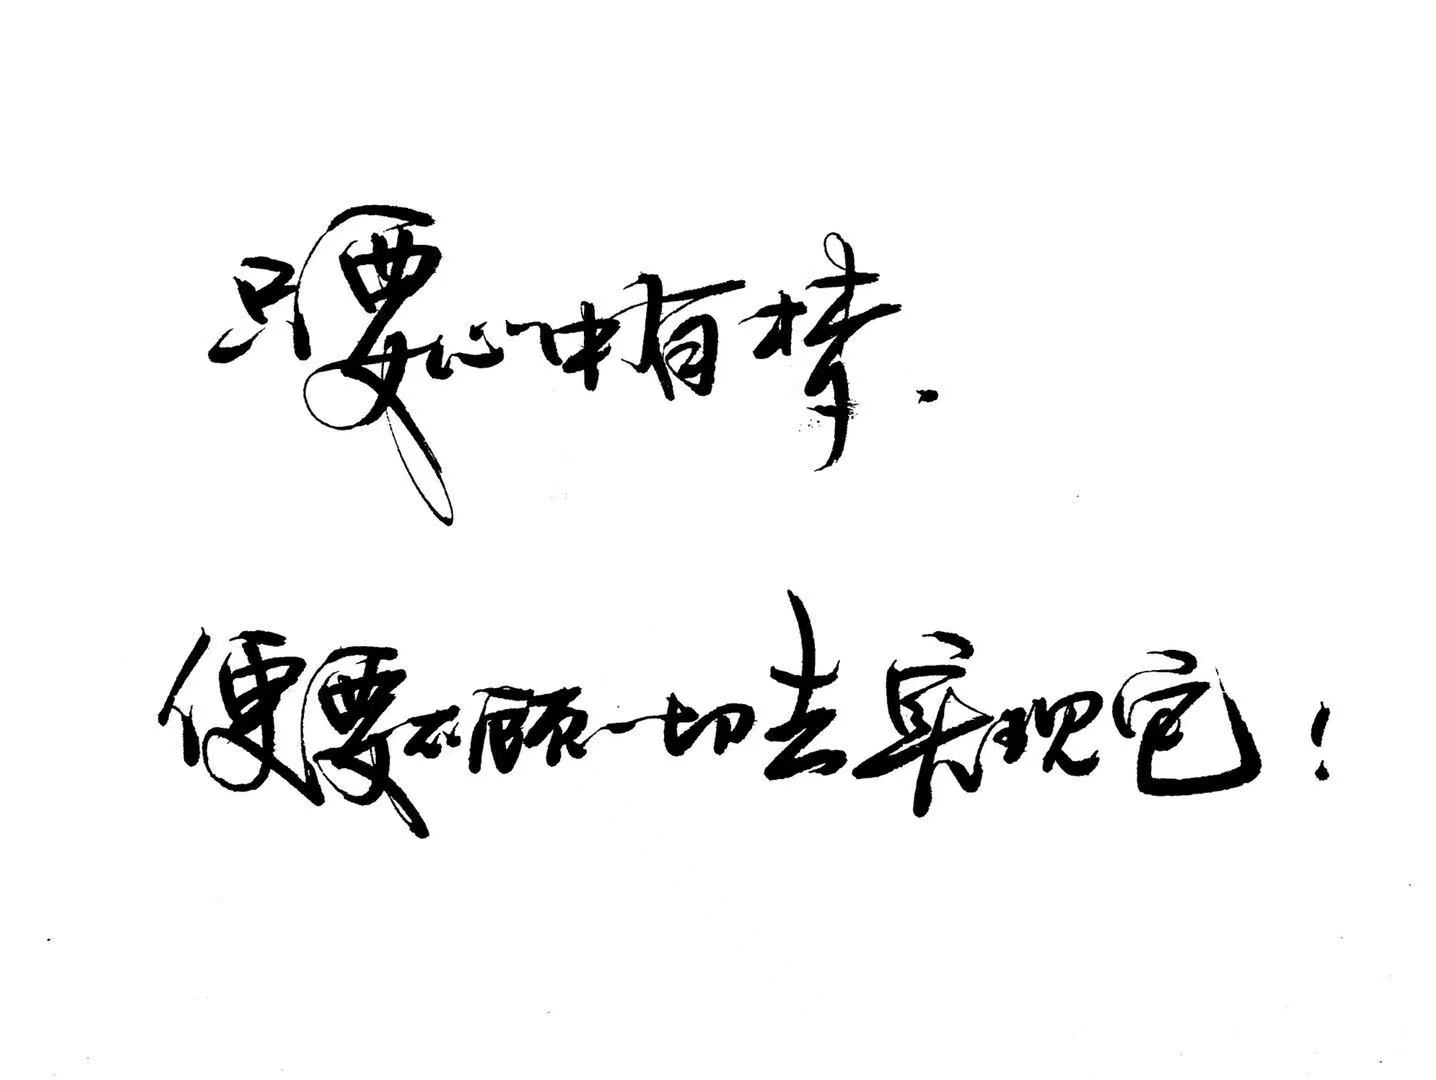 只要心中有梦.
便要不顾一切去实现它！